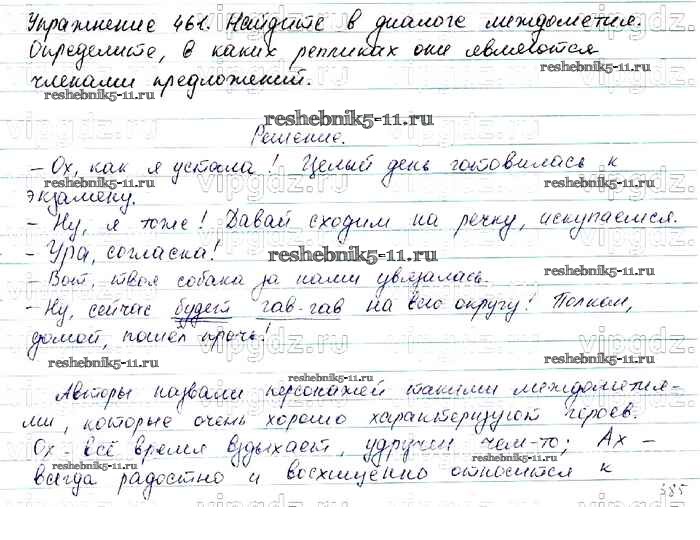 Упражнение 461. Найдите в диалоге междометия.
Определите, в каких репликах они являются
членами предложений.
reshebnik5-11.ru
reshebnik5-11.ru
reshebnik5-11.ru
Решение.
- Ох, как я устала! Целый день готовилась к
экзамену.
reshebnik5-11.ru
reshebnik5-11.ru
- Ну, я тоже! Давай сходим на речку, искупаемся.
- Ура, согласна!
reshebnik5-11.ru
- Вот, твоя собака за нами увязалась.
reshebnik5-11.ru
- Ну, сейчас будет гав-гав на всю округу! Полкан,
домой, пошёл прочь!
vipgdz.ru
reshebnik5-11.ru
reshebnik5-11.ru
Авторы назвали персонажей такими междометия-
ми, которые очень хорошо характеризуют героев.
reshebnik5-11.ru
Ох - всё время вздыхает, удручён чем-то; Ах -
reshebnik5-11.ru
reshebnik5-11.ru
всегда радостно и восхищенно относится к
385